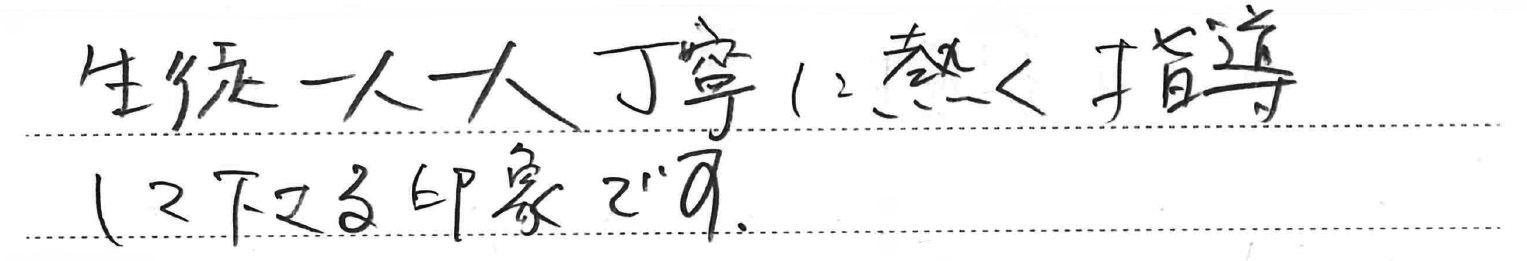 生徒一人一人丁寧に熱く指導
して下さる印象です.